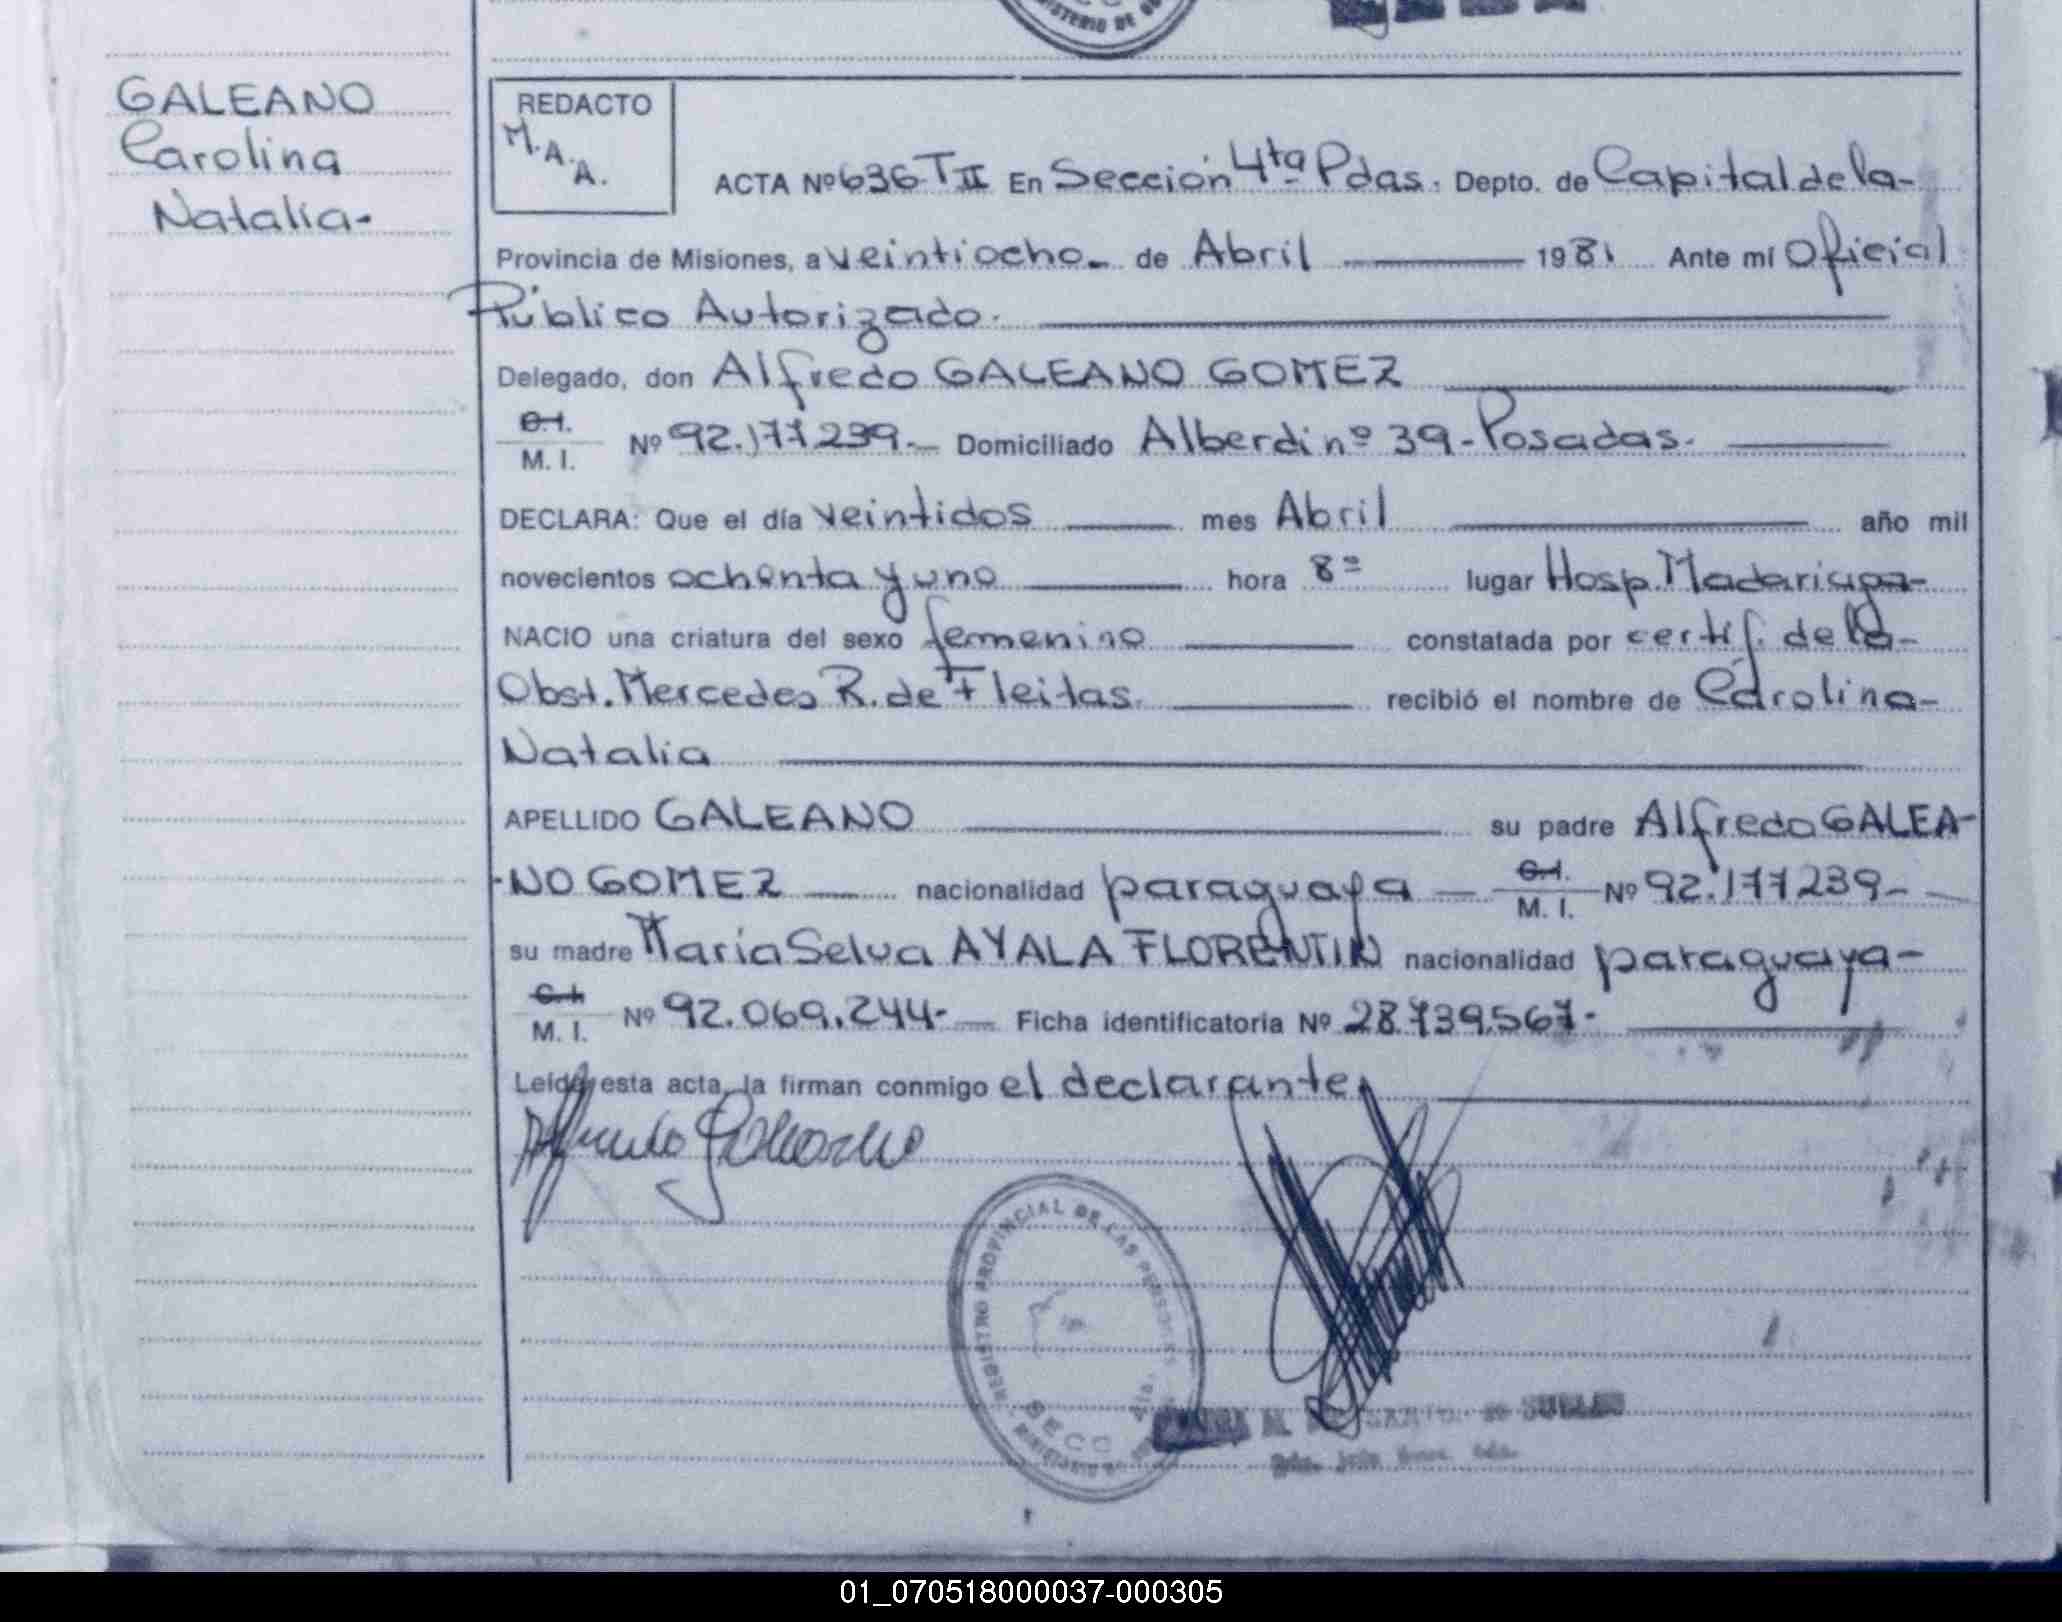 MINISTERIO DE GO
GALEANO
Carolina
Natalia-
REDACTO
M.A.A.
ACTA Nº 636 T II En Sección 4ta Pdas. Depto. de Capital de la-
Provincia de Misiones, a veintiocho- de Abril 1981 Ante mí Oficial
Público Autorizado.
Delegado, don Alfredo GALEANO GOMEZ
C.I.
M. I. Nº 92.177.239.- Domiciliado Alberdi nº 39-Posadas.
DECLARA: Que el día veintidos mes Abril año mil
novecientos ochenta y uno hora 8= lugar Hosp. Madariaga-
NACIO una criatura del sexo femenino constatada por certif. de la-
Obst. Mercedes R. de Fleitas. recibió el nombre de Carolina-
Natalia
APELLIDO GALEANO su padre Alfredo GALEA-
-NO GOMEZ nacionalidad paraguaya C.I.
M. I. Nº 92.177.239-
su madre María Selva AYALA FLORENTIN nacionalidad paraguaya-
C.I.
M. I. Nº 92.069.244- Ficha identificatoria Nº 28.739.567-
Leída esta acta, la firman conmigo el declarante,
Alfredo Galeano
REGISTRO PROVINCIAL DE LAS PERSONAS
SECC 4ta.
01_070518000037-000305